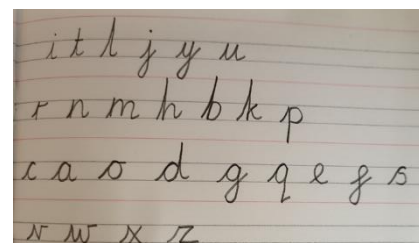 i t l j y u
r n m h b k p
c a o d g q e f s
v w x z